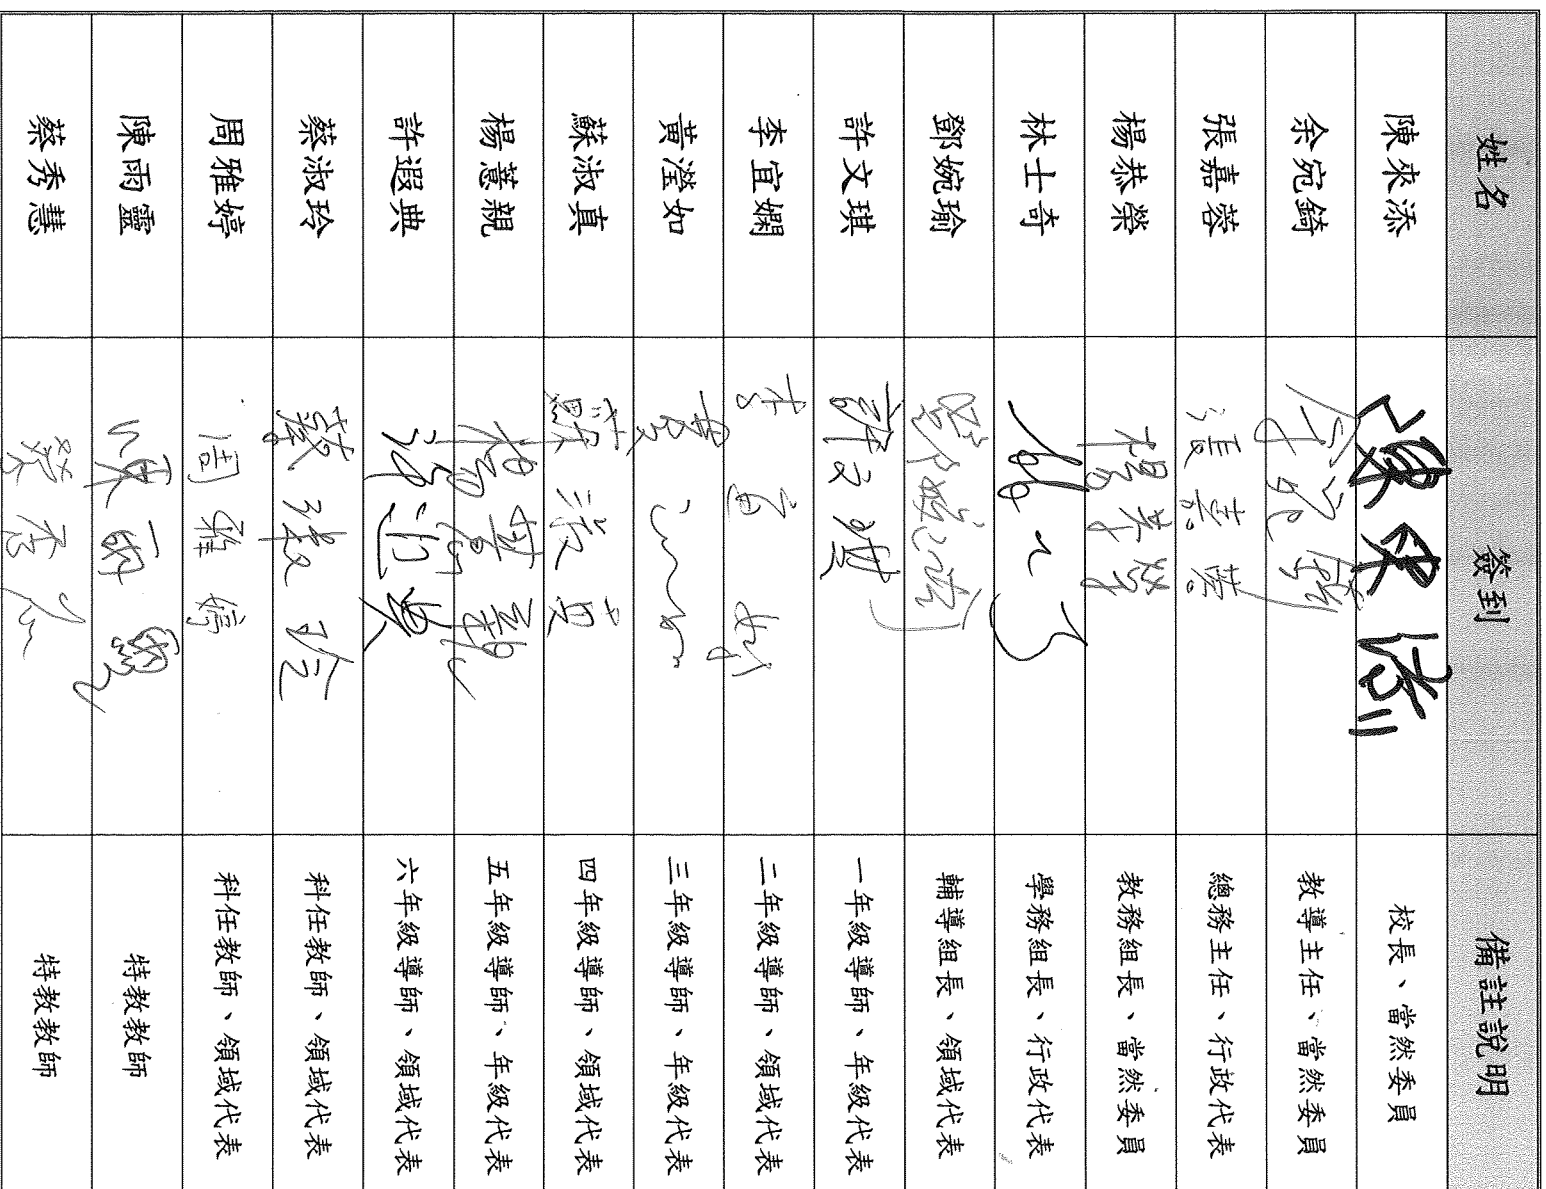 姓名 簽到 備註說明
陳來添 陳來添 校長、當然委員
余宛錡 余宛錡 教導主任、當然委員
張嘉蓉 張嘉蓉 總務主任、行政代表
楊恭榮 楊恭榮 教務組長、當然委員
林士奇 學務組長、行政代表
鄧婉瑜 鄧婉瑜 輔導組長、領域代表
許文琪 許文琪 一年級導師、年級代表
李宜嫻 李宜嫻 二年級導師、領域代表
黃瀅如 三年級導師、年級代表
蘇淑真 蘇淑真 四年級導師、領域代表
楊薏親 楊薏親 五年級導師、年級代表
許遐典 六年級導師、領域代表
蔡淑玲 蔡淑玲 科任教師、領域代表
周雅婷 周雅婷 科任教師、領域代表
陳雨靈 陳雨靈 特教教師
蔡秀慧 特教教師